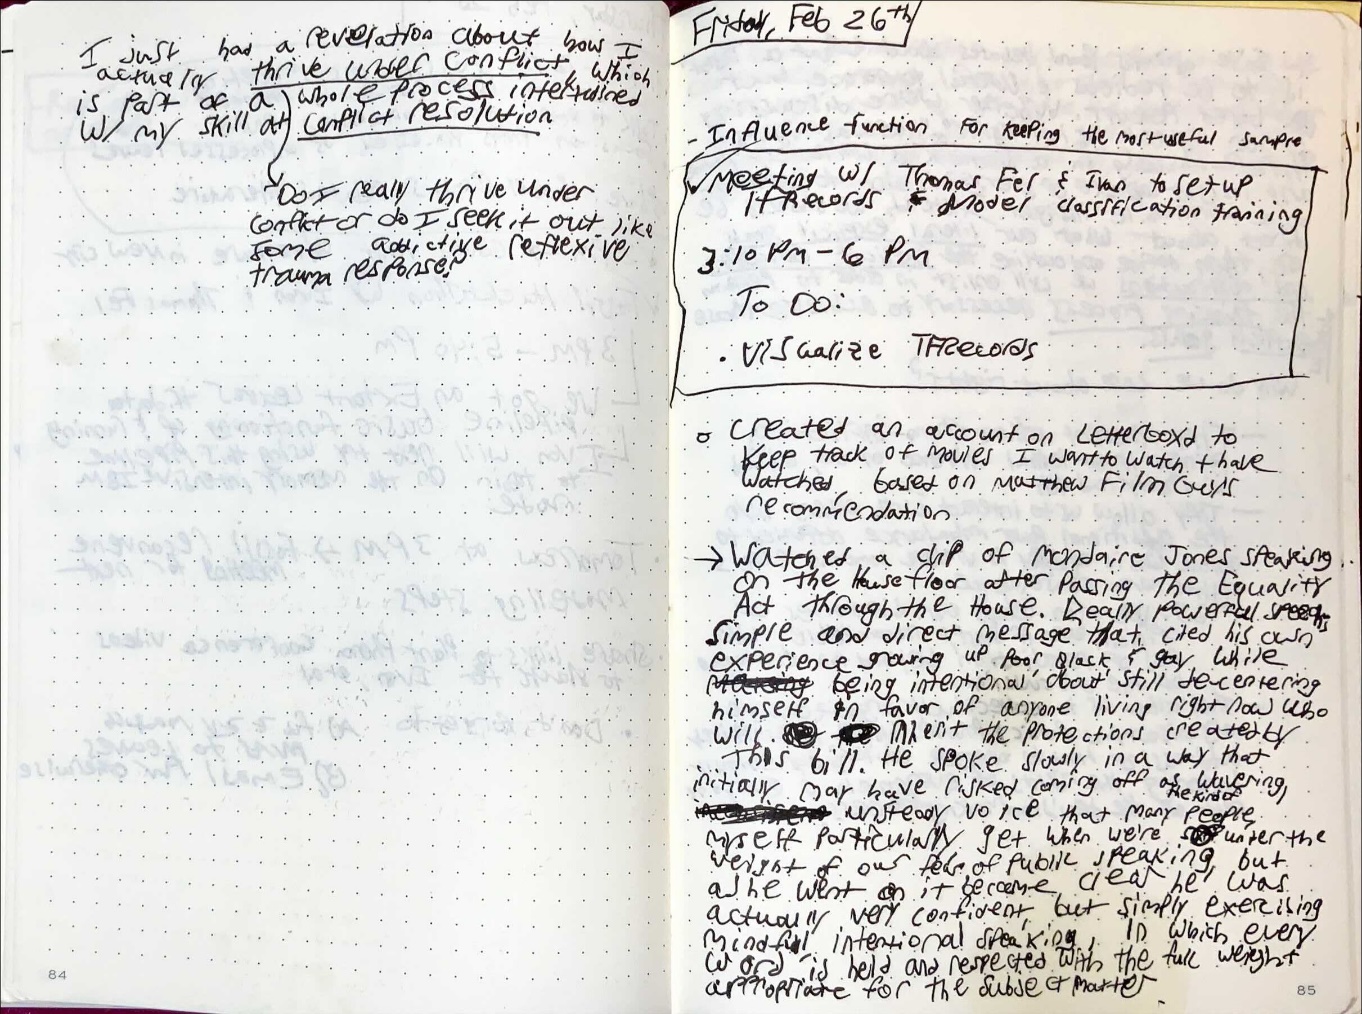 I just had a revelation about how I
actually thrive under conflict, which
is part of a whole process intertwined
w/ my skill at conflict resolution
Do I really thrive under
conflict or do I seek it out like
some addictive reflexive
trauma response?
84
Friday, Feb 26th
- Influence function for keeping the most useful sample
Meeting w/ Thomas Fel & Ivan to set up
TFRecords & Model classification training
3:10 PM - 6 PM
To Do:
• Visualize TFRecords
o Created an account on Letterboxd to
keep track of movies I want to watch + have
watched, based on Matthew Film Guy's
recommendation
→ Watched a clip of Mondaire Jones speaking
on the House floor after passing the Equality
Act through the House. Really powerful speech
simple and direct message that cited his own
experience growing up poor black & gay while
being intentional about still de-centering
himself in favor of anyone living right now who
will inherit the protections created by
this bill. He spoke slowly in a way that
initially may have risked coming off as wavering,
the kind of
unsteady voice that many people,
myself particularly get when we're under the
weight of our fear of public speaking, but
as he went on it became clear he was
actually very confident, but simply exercising
mindful intentional speaking, in which every
word is held and respected with the full weight
appropriate for the subject matter.
85